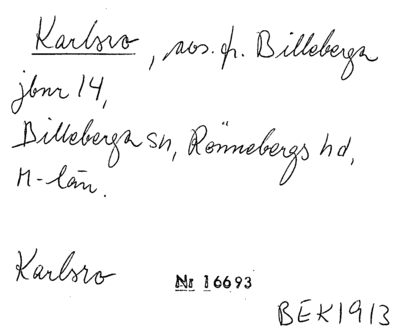 Karlsro, avs. fr. Billeberga
jbnr 14,
Billeberga sn, Rönnebergs hd,
M-län.
Karlsro Nr 16693
BEK1913